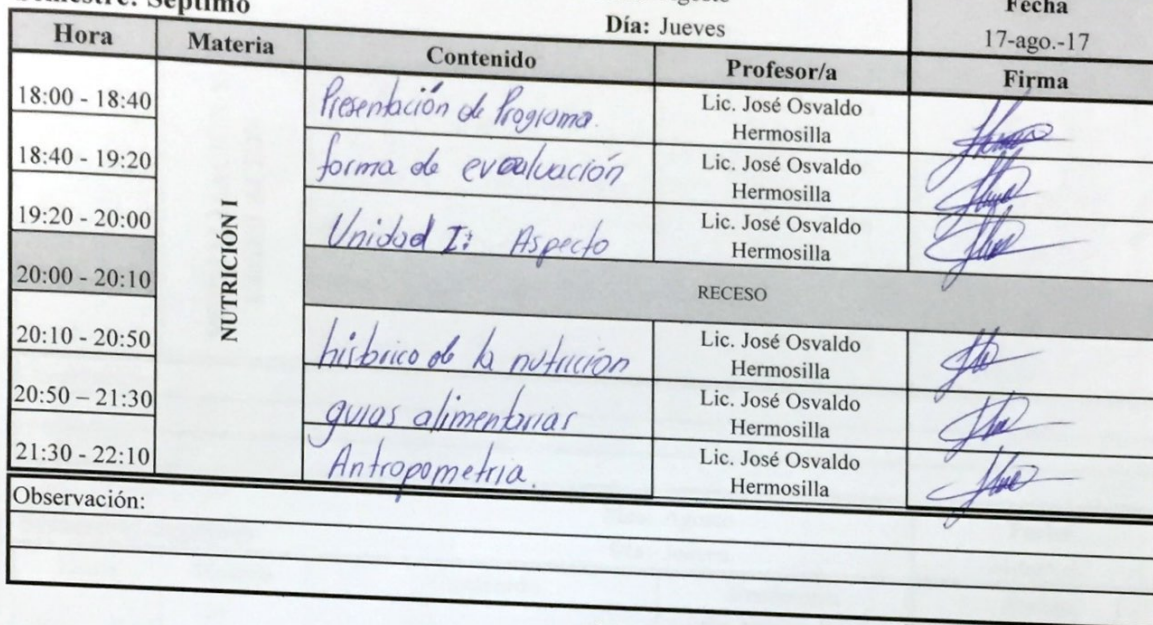 Semestre: Séptimo
Día: Jueves
Fecha
17-ago.-17
Hora Materia Contenido Profesor/a Firma
NUTRICIÓN I
18:00 - 18:40 Presentación de Programa. Lic. José Osvaldo
Hermosilla
18:40 - 19:20 forma de evaluación Lic. José Osvaldo
Hermosilla
19:20 - 20:00 Unidad I: Aspecto Lic. José Osvaldo
Hermosilla
20:00 - 20:10 RECESO
20:10 - 20:50 histórico de la nutrición Lic. José Osvaldo
Hermosilla
20:50 – 21:30 guias alimentarias Lic. José Osvaldo
Hermosilla
21:30 - 22:10 Antropometria. Lic. José Osvaldo
Hermosilla
Observación: